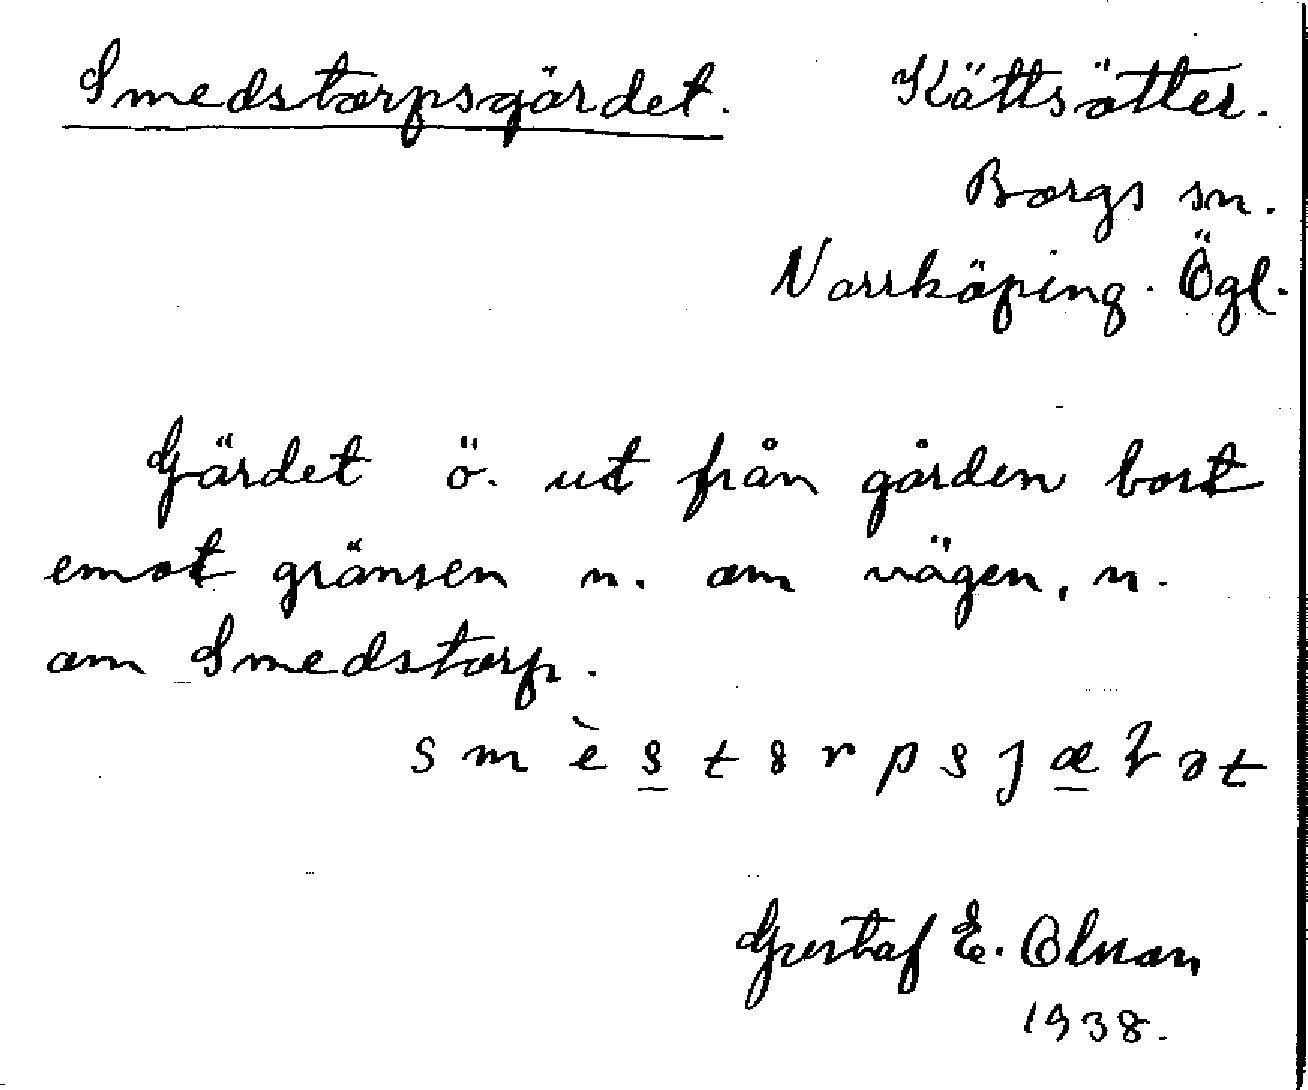 Smedstorpsgärdet.
Köttsätter.
Borgs sn.
Norrköping. Ögl.
Gärdet ö. ut från gården bort
emot gränsen n. om vägen, n.
om Smedstorp.
Gustaf E. Olsson
1938.